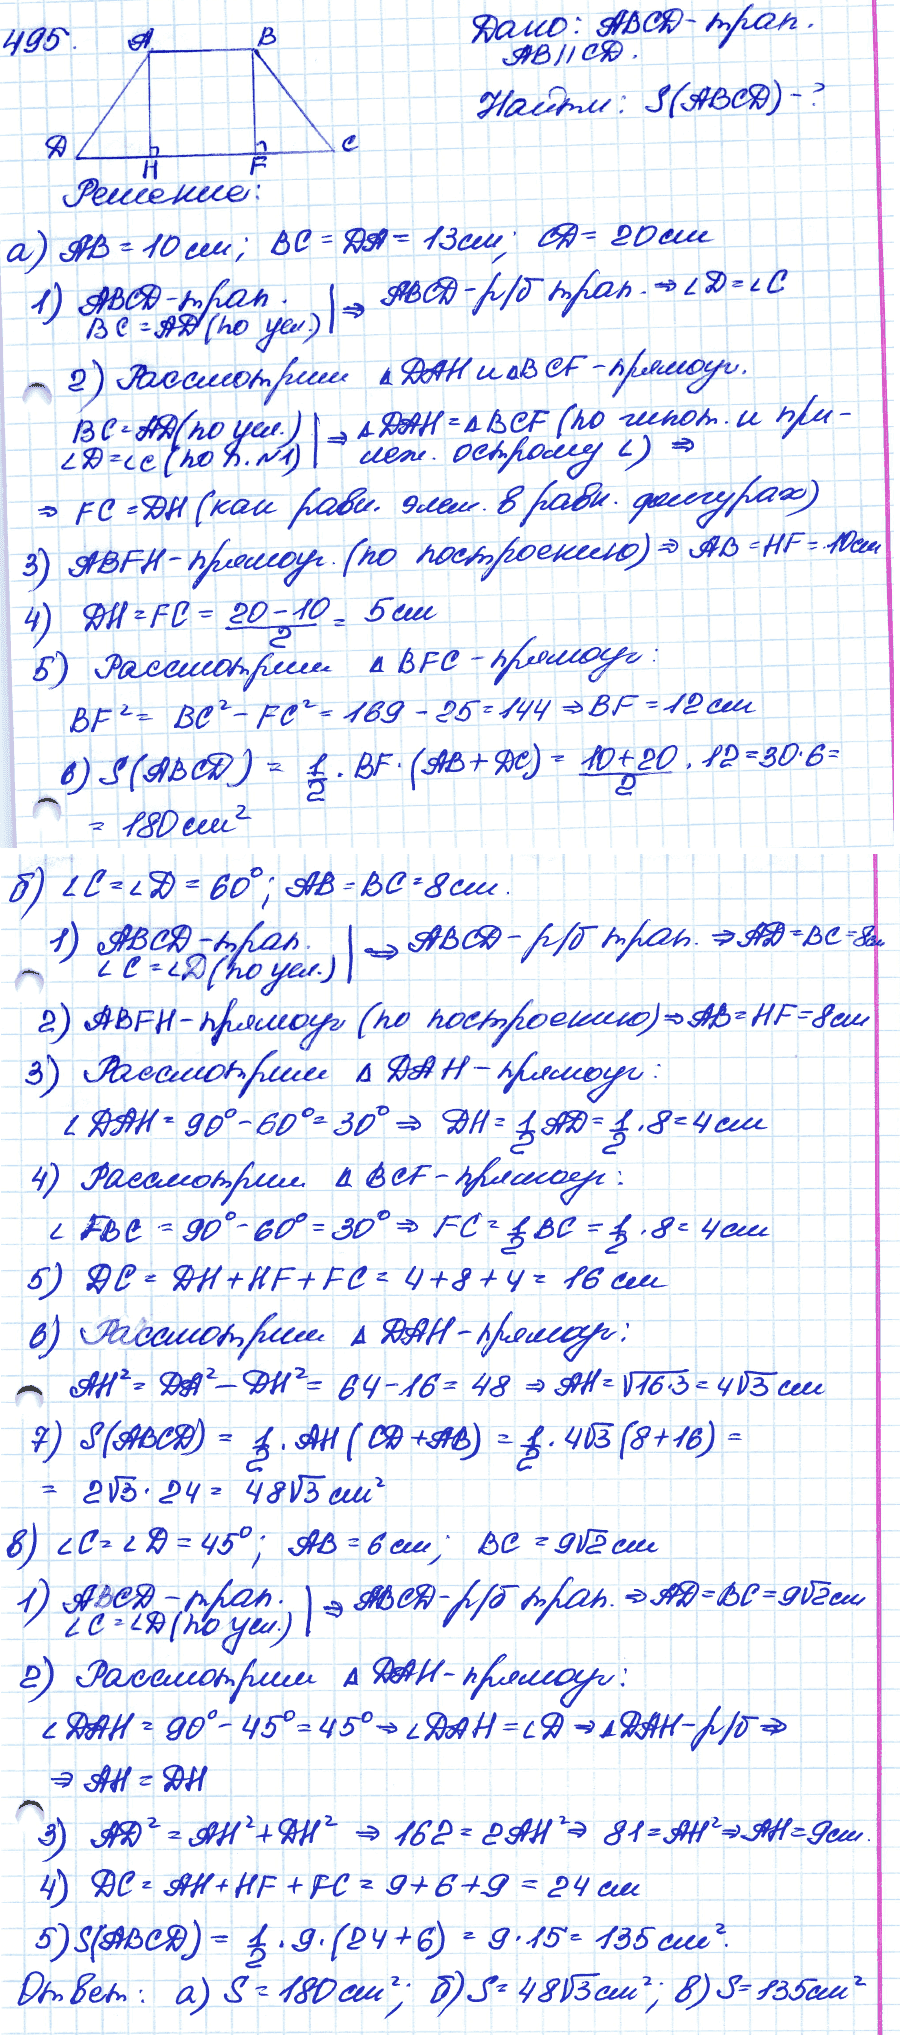 495.
A B
D H F C
Дано: ABCD-трап.
AB||CD.
Найти: S(ABCD)-?
Решение:
а) AB = 10 см; BC = DA = 13 см; CD = 20 см
1) ABCD-трап. | ⇒ ABCD-р/б трап. ⇒ ∠D=∠C
BC=AD (по усл.)
2) Рассмотрим △DAH и △BCF-прямоуг.
BC=AD (по усл.) | ⇒ △DAH = △BCF (по гипот. и при-
∠D=∠C (по п.№1) леж. острому ∠) ⇒
⇒ FC = DH (как равн. элем. в равн. фигурах)
3) ABFH-прямоуг. (по построению) ⇒ AB = HF = 10 см
4) DH = FC = (20-10)/2 = 5 см
5) Рассмотрим △BFC-прямоуг:
BF² = BC² - FC² = 169 - 25 = 144 ⇒ BF = 12 см
6) S(ABCD) = 1/2 · BF · (AB + DC) = (10+20)/2 · 12 = 30·6 =
= 180 см²
б) ∠C = ∠D = 60°; AB = BC = 8 см.
1) ABCD-трап. | ⇒ ABCD-р/б трап. ⇒ AD = BC = 8 см
∠C = ∠D (по усл.)
2) ABFH-прямоуг (по построению) ⇒ AB = HF = 8 см
3) Рассмотрим △DAH-прямоуг:
∠DAH = 90° - 60° = 30° ⇒ DH = 1/2 AD = 1/2 · 8 = 4 см
4) Рассмотрим △BCF-прямоуг:
∠FBC = 90° - 60° = 30° ⇒ FC = 1/2 BC = 1/2 · 8 = 4 см
5) DC = DH + HF + FC = 4 + 8 + 4 = 16 см
6) Рассмотрим △DAH-прямоуг:
AH² = DA² - DH² = 64 - 16 = 48 ⇒ AH = √16·3 = 4√3 см
7) S(ABCD) = 1/2 · AH (CD + AB) = 1/2 · 4√3 (8 + 16) =
= 2√3 · 24 = 48√3 см²
в) ∠C = ∠D = 45°; AB = 6 см; BC = 9√2 см
1) ABCD-трап. | ⇒ ABCD-р/б трап. ⇒ AD = BC = 9√2 см
∠C = ∠D (по усл.)
2) Рассмотрим △DAH-прямоуг:
∠DAH = 90° - 45° = 45° ⇒ ∠DAH = ∠D ⇒ △DAH-р/б ⇒
⇒ AH = DH
3) AD² = AH² + DH² ⇒ 162 = 2AH² ⇒ 81 = AH² ⇒ AH = 9 см.
4) DC = AH + HF + FC = 9 + 6 + 9 = 24 см
5) S(ABCD) = 1/2 · 9 · (24 + 6) = 9 · 15 = 135 см².
Ответ: а) S = 180 см²; б) S = 48√3 см²; в) S = 135 см²